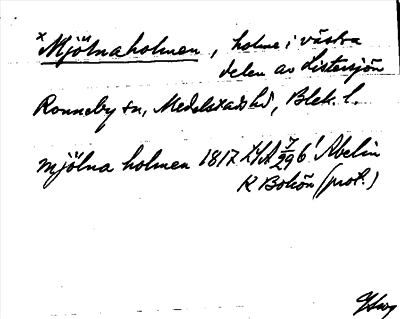 x Mjölnaholmen, holme i västra
delen av Listersjön
Ronneby sn, Medelstads hd, Blek. l.
mjölna holmen 1817 LSA 7/29 6! Abelin
R Bokön (prot.)